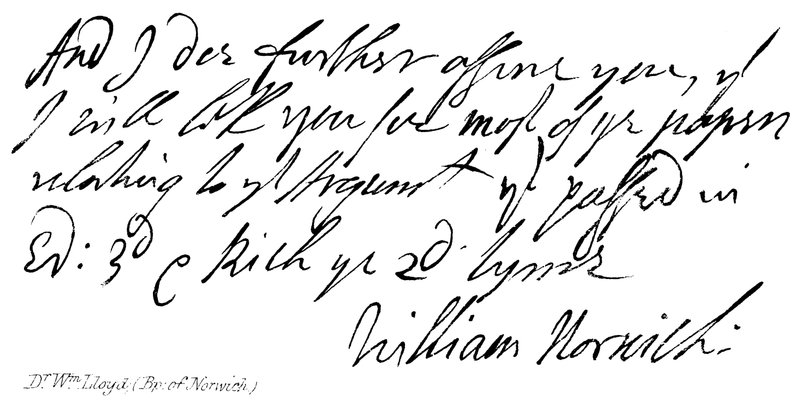 And I doe further assure you, yt
I will lett you see most of ye papers
relating to yt Argument yt passed in
Ed: 3d & Rich ye 2d tyme
William Norwich:
Dr. Wm. Lloyd, (Bp: of Norwich)